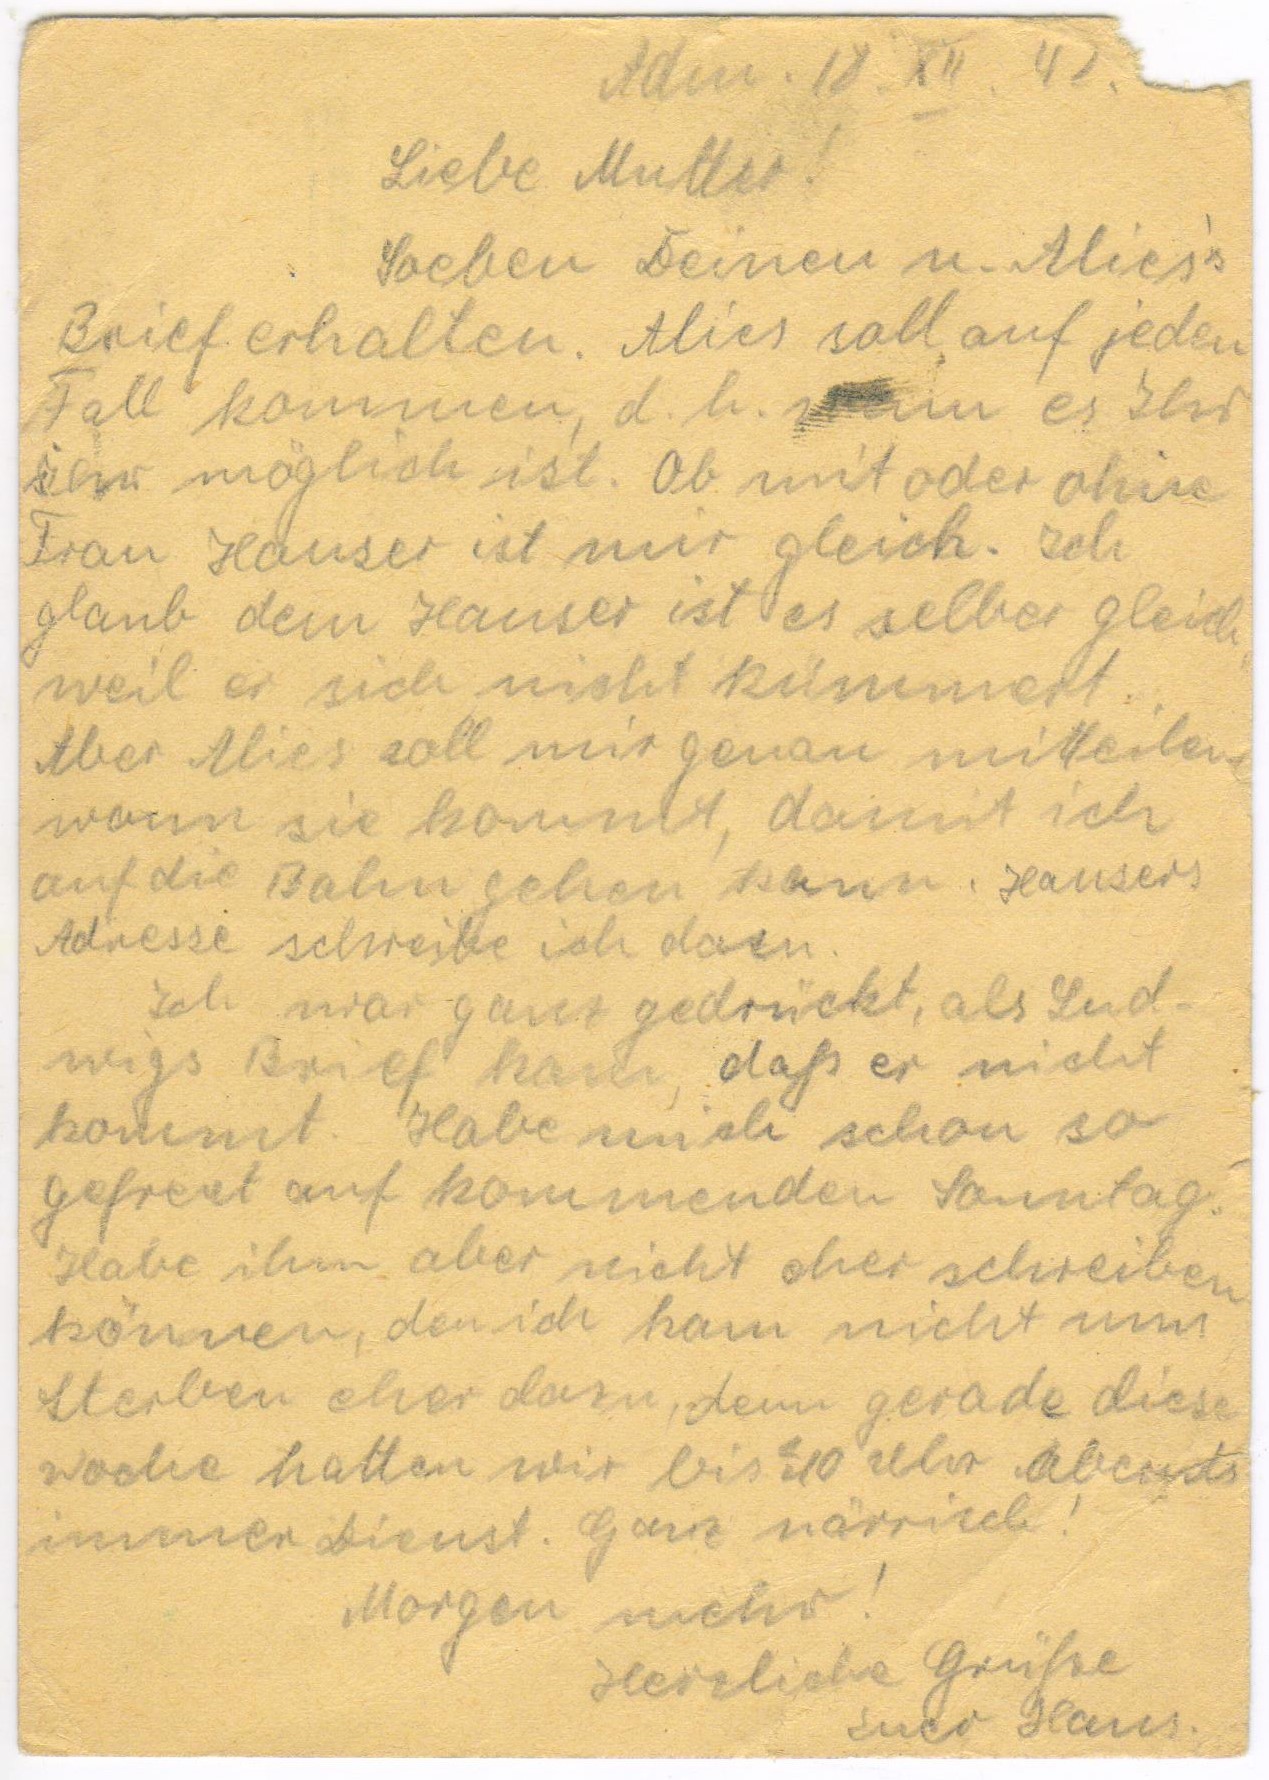 Adm. 18. XII. 42.
Liebe Mutter!
Soeben Deinen u. Alies's
Brief erhalten. Alies soll auf jeden
Fall kommen, d. h. wann es Ihr
möglich ist. Ob mit oder ohne
Frau Hauser ist mir gleich. Ich
glaub dem Hauser ist es selber gleich,
weil er sich nicht kümmert.
Aber Alies soll mir genau mitteilen
wann sie kommt, damit ich
auf die Bahn gehen kann. Hausers
Adresse schreibe ich dazu.
Ich war ganz gedrückt, als Lud-
wigs Brief kam, daß er nicht
kommt. Habe mich schon so
gefreut auf kommenden Sonntag.
Habe ihm aber nicht eher schreiben
können, den ich kam nicht ums
Sterben eher dazu, denn gerade diese
woche hatten wir bis 10 Uhr Abends
immer Dienst. Ganz närrisch!
Morgen mehr!
Herzliche Grüße
Euer Hans.